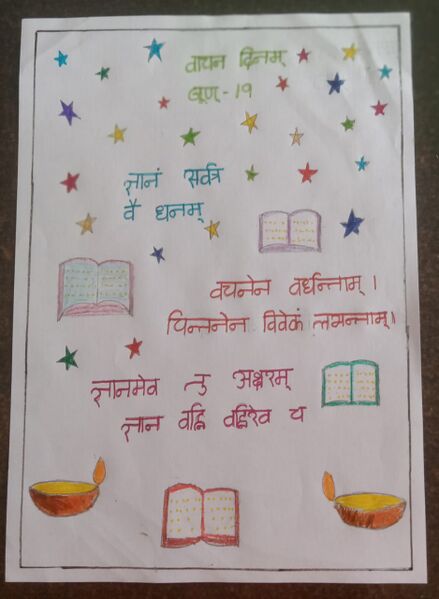 वाचन दिनम्
जूण - 19
ज्ञानं सर्वत्र
वै धनम्
वचनेन वर्धन्ताम् ।
चिन्तनेन विवेकं लभन्ताम् ।
ज्ञानमेव तु अक्षरम्
ज्ञान वह्नि वह्निरेव च